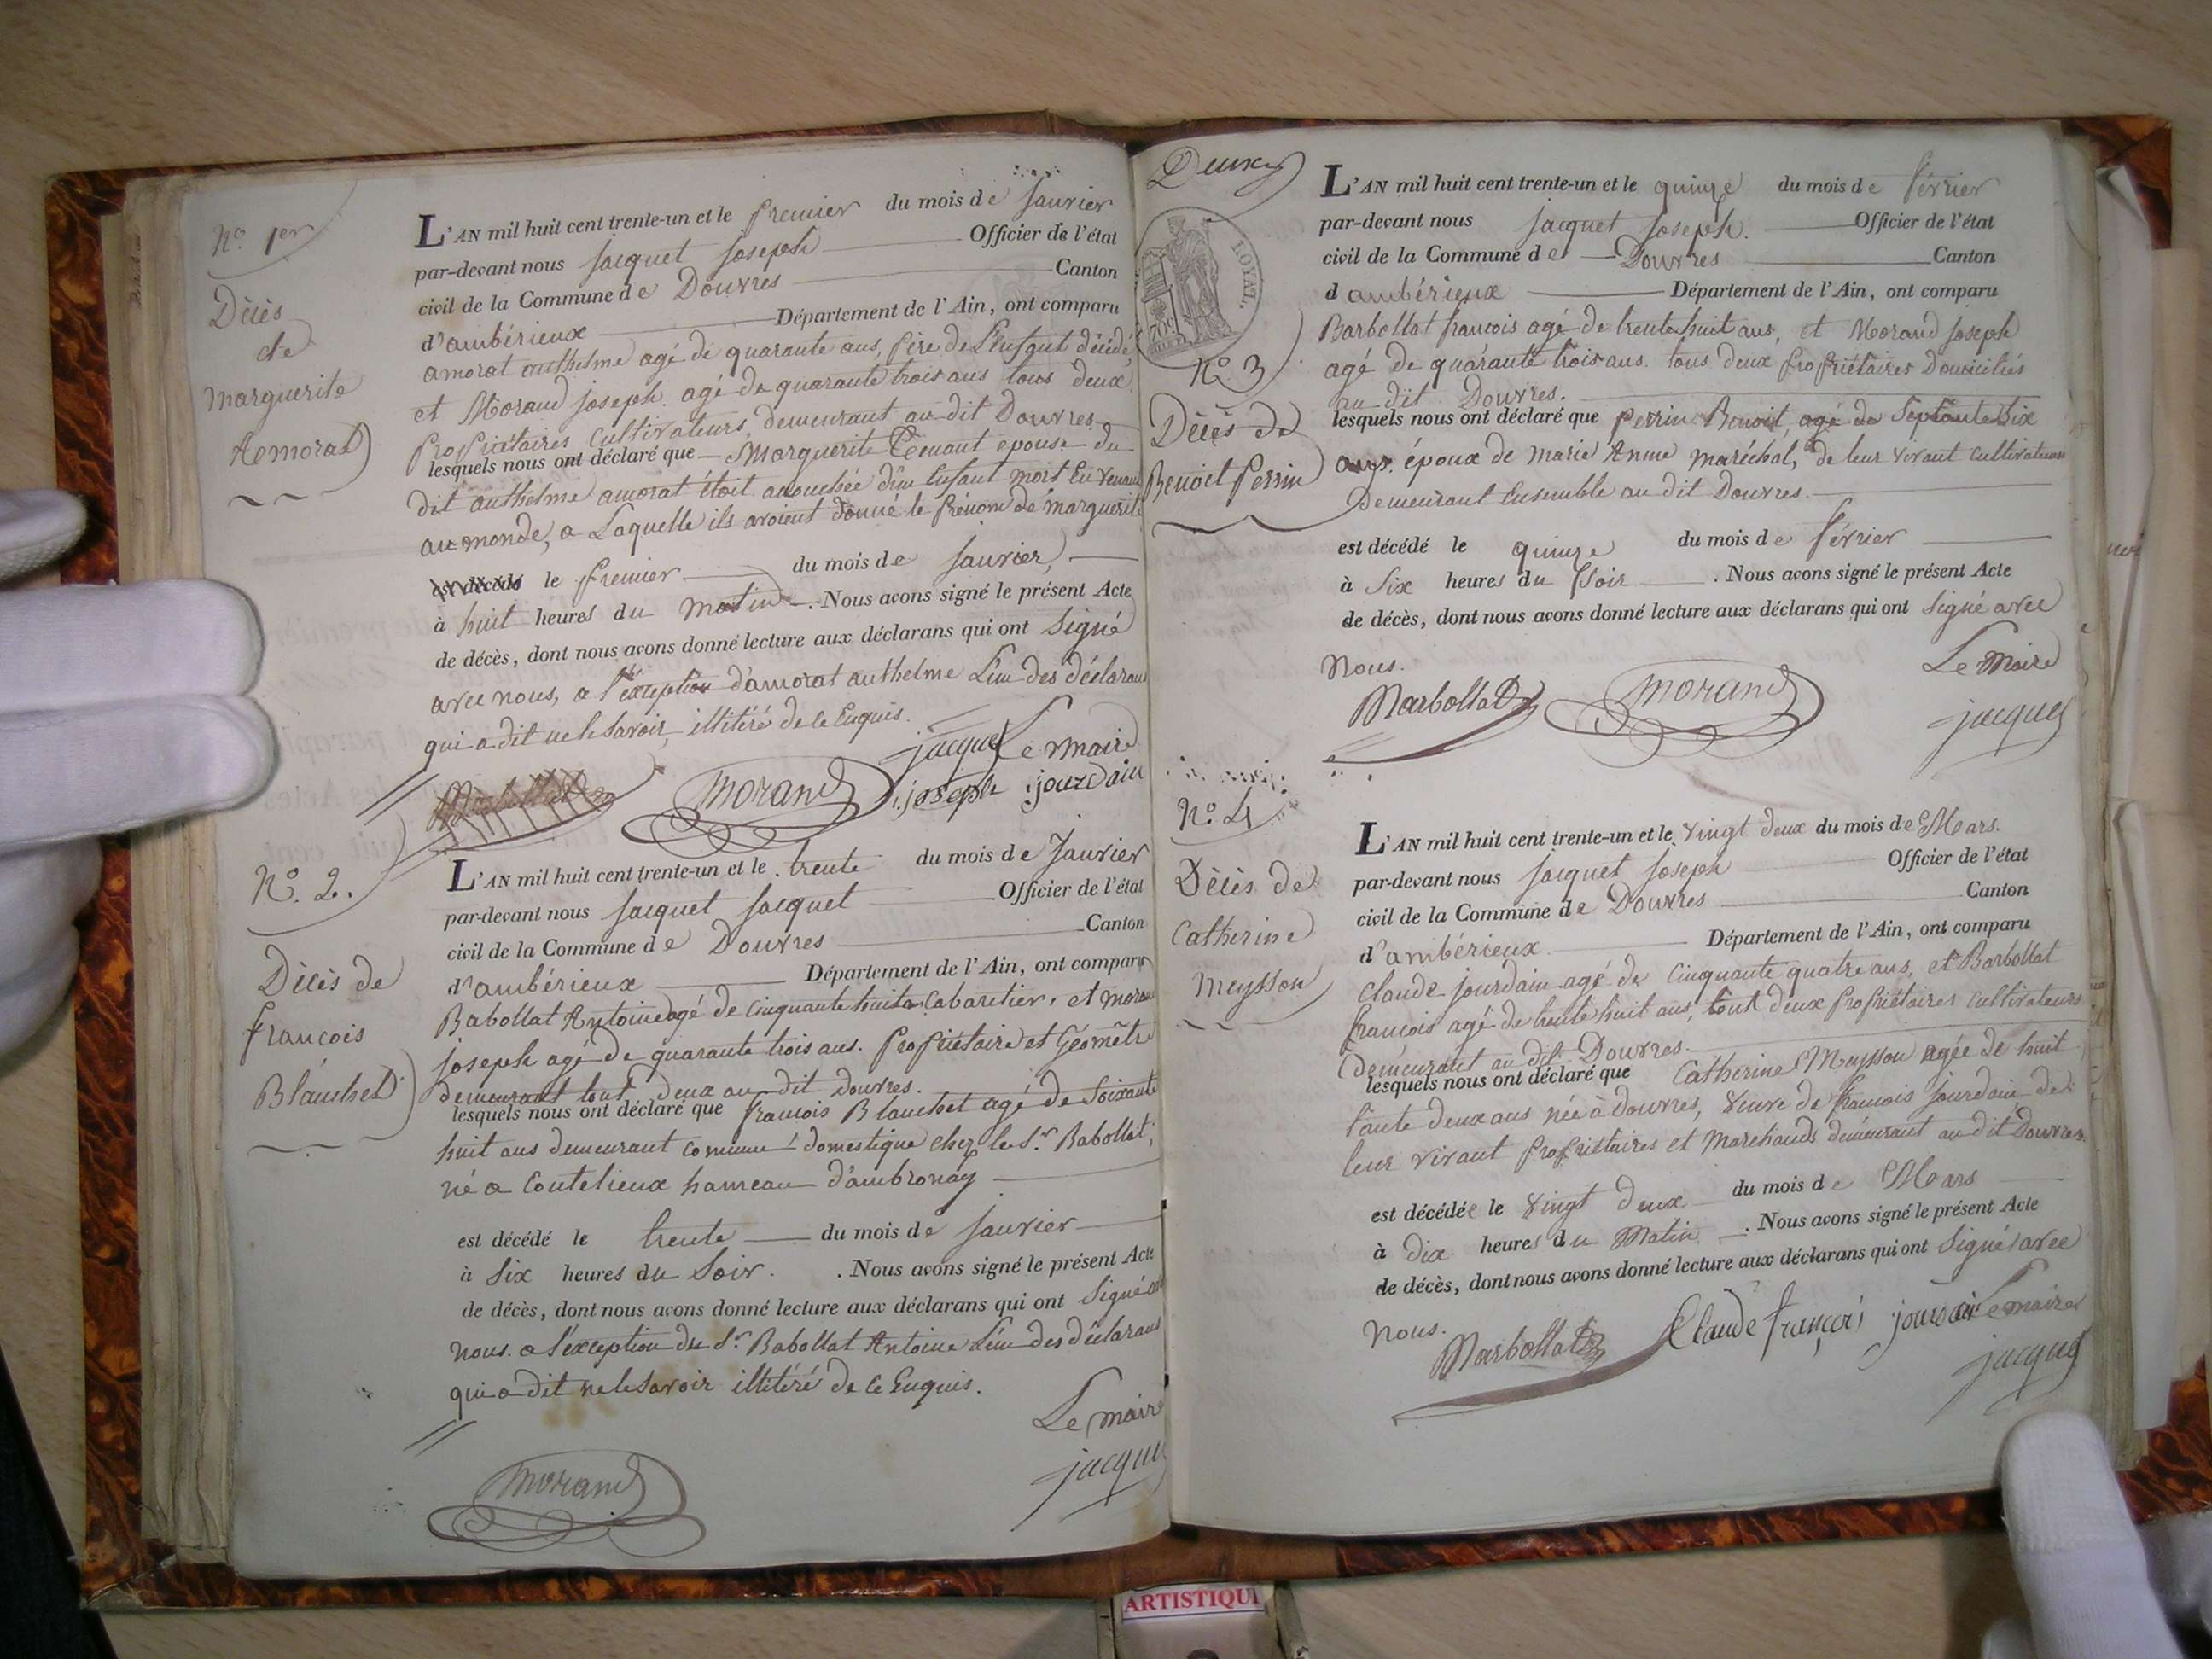 N.º 1er
Décès
de
Marguerite
Aemorat
L'AN mil huit cent trente-un et le premier du mois de Janvier
par-devant nous Jacquet Joseph Officier de l'état
civil de la Commune de Douvres Canton
d'ambérieux Département de l'Ain, ont comparu
amorat anthelme agé de quarante ans, père de l'Enfant décédé,
et Morand Joseph agé de quarante trois ans tous deux
propriétaires Cultivateurs, demeurant au dit Douvres
lesquels nous ont déclaré que Marguerite épouse du
dit anthelme amorat étoit accouchée d'un Enfant mort En venant
au monde, a Laquelle ils avoient donné le prénom de marguerite
est décédé le premier du mois de Janvier,
à huit heures du matin. Nous avons signé le présent Acte
de décès, dont nous avons donné lecture aux déclarans qui ont Signé
avec nous, a l'exception d'amorat anthelme L'un des déclarans
qui a dit ne le savoir, illitéré de ce Enquis.
jacquet Le maire
Morand joseph jourdain
N.º 2.
Décès de
françois
Blanchet
L'AN mil huit cent trente-un et le trente du mois de Janvier
par-devant nous Jacquet Jacquet Officier de l'état
civil de la Commune de Douvres Canton
d'ambérieux Département de l'Ain, ont comparu
Babollat Antoine agé de Cinquante huit Cabaretier, et moran
joseph agé de quarante trois ans. propriétaire et Géomêtre
demeurant tout deux au dit Douvres.
lesquels nous ont déclaré que francois Blanchet agé de Soixante
huit ans demeurant comme domestique chez le S.r Babollat,
né a Coutelieux hameau d'ambronay
est décédé le trente du mois de Janvier
à Six heures du Soir. . Nous avons signé le présent Acte
de décès, dont nous avons donné lecture aux déclarans qui ont Signé
nous. a l'exception du S.r Babollat Antoine L'un des déclarans
qui a dit ne le savoir illitéré de ce Enquis.
Le maire
Morand jacquet
Deux
ROYAL.
70c
N.º 3
Décès de
Benoit Perrin
L'AN mil huit cent trente-un et le quinze du mois de février
par-devant nous Jacquet Joseph. Officier de l'état
civil de la Commune de Douvres Canton
d ambérieux Département de l'Ain, ont comparu
Barbollat francois agé de trente huit ans, et Morand Joseph
agé de quarante trois ans. tous deux propriétaires Domiciliés
au dit Douvres.
lesquels nous ont déclaré que Perrin Benoit, agé de Septante Six
ans. époux de Marie Anne Maréchal, de leur vivant Cultivateurs
Demeurant Ensemble au dit Douvres.
est décédé le quinze du mois de février
à Six heures du Soir. Nous avons signé le présent Acte
de décès, dont nous avons donné lecture aux déclarans qui ont Signé avec
Nous. Le Maire
Barbollat Morand jacquet
N.º 4
Décès de
Catherine
Meysson
L'AN mil huit cent trente-un et le vingt deux du mois de Mars.
par-devant nous Jacquet Joseph Officier de l'état
civil de la Commune de Douvres Canton
d'ambérieux Département de l'Ain, ont comparu
Claude jourdain agé de Cinquante quatre ans, et Barbollat
françois agé de trente huit ans, tout deux propriétaires Cultivateurs
demeurant au dit Douvres.
lesquels nous ont déclaré que Catherine Meysson agée de huit
tante deux ans née à Douvres, veuve de francois Jourdain de
leur vivant propriétaires et Marchands demeurant au dit Douvres.
est décédée le vingt deux du mois de Mars
à dix heures du Matin. Nous avons signé le présent Acte
de décès, dont nous avons donné lecture aux déclarans qui ont Signé avec
Nous. Barbollat Claude françois jourdain Le maire
jacquet
ARTISTIQU